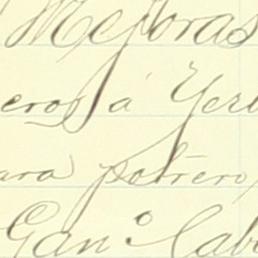 Mejoras
eros á Yer
ara potrero,
Gan.º Cab